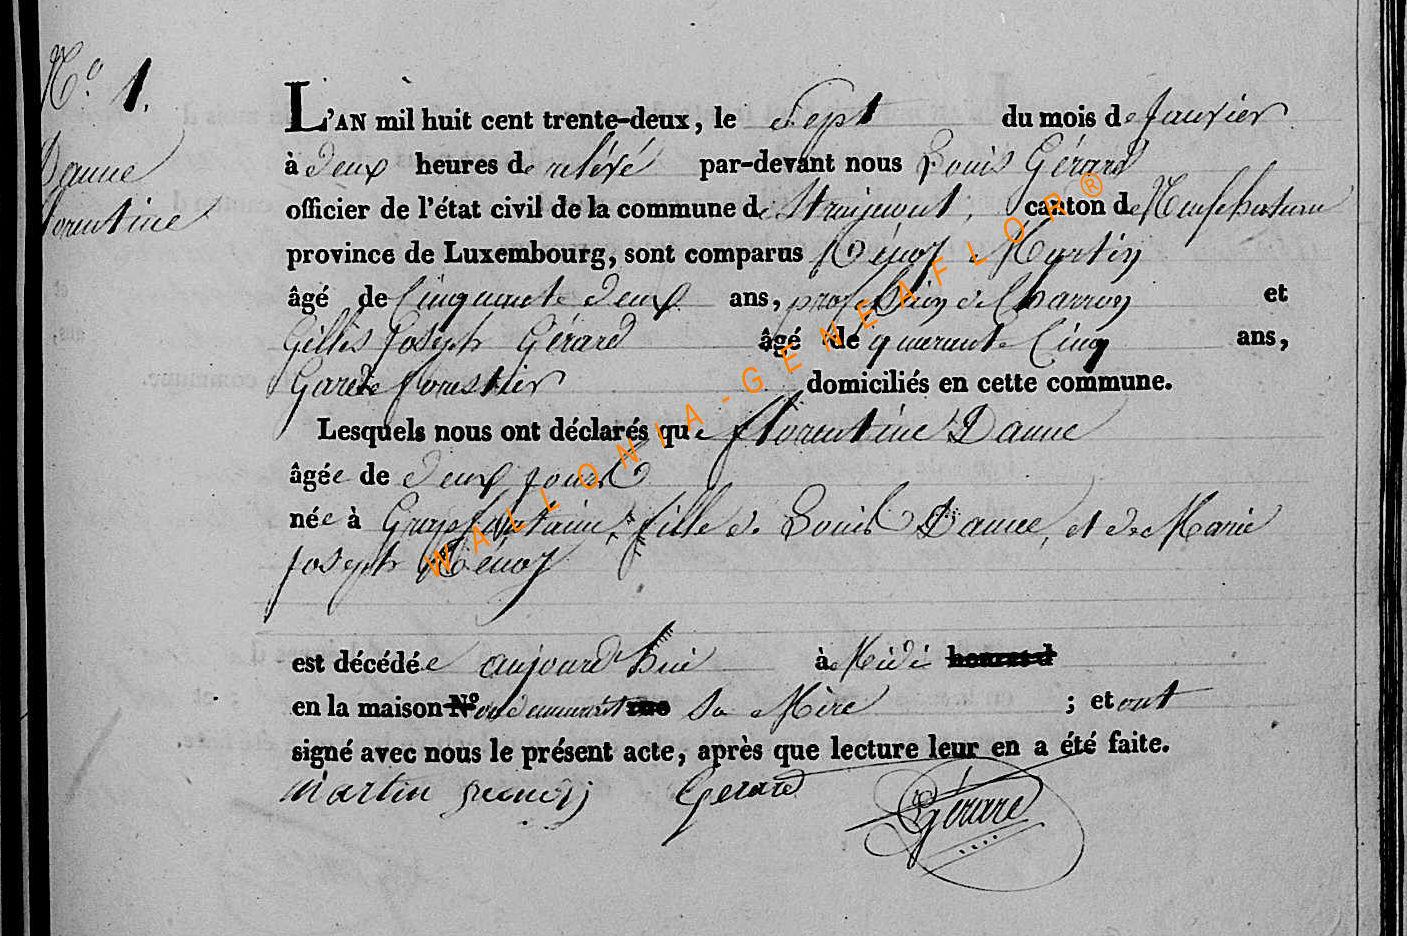 N.º 1.
Danne
Florentine
L'AN mil huit cent trente-deux, le Sept du mois de Janvier
à deux heures de relévé par-devant nous Louis Gérard
officier de l'état civil de la commune de Straimont, canton de Neufchateau
province de Luxembourg, sont comparus Martin
âgé de Cinquante deux ans, profession de Charron et
Gilles Joseph Gérard âgé de quarante Cinq ans,
Garde forestier domiciliés en cette commune.
Lesquels nous ont déclarés que florentine Danne
âgée de deux jours
née à Grapfontaine, fille de Louis Danne, et de Marie
Joseph
est décédée aujourd'hui à Midi heures d
en la maison N.º ou demeurait rue Sa Mère ; et ont
signé avec nous le présent acte, après que lecture leur en a été faite.
Martin Gerard Gérard
WALLONIA-GENEAFLOR®